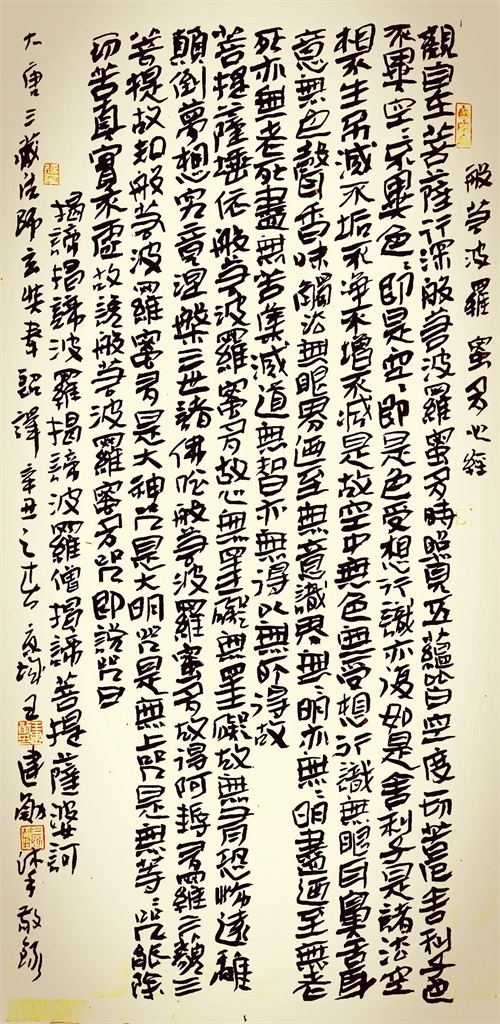 般若波羅蜜多心經
觀自在菩薩行深般若波羅蜜多時照見五蘊皆空度一切苦厄舍利子色
不異空空不異色色即是空空即是色受想行識亦復如是舍利子是諸法空
相不生不滅不垢不淨不增不減是故空中無色無受想行識無眼耳鼻舌身
意無色聲香味觸法無眼界迺至無意識界無無明亦無無明盡迺至無老
死亦無老死盡無苦集滅道無智亦無得以無所得故
菩提薩埵依般若波羅蜜多故心無罣礙無罣礙故無有恐怖遠離
顛倒夢想究竟涅槃三世諸佛依般若波羅蜜多故得阿耨多羅三藐三
菩提故知般若波羅蜜多是大神咒是大明咒是無上咒是無等等咒能除
一切苦真實不虛故說般若波羅蜜多咒即說咒曰
揭諦揭諦波羅揭諦波羅僧揭諦菩提薩婆訶
大唐三藏法師玄奘奉詔譯辛丑之 王建勛沐手敬錄